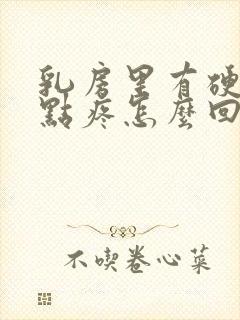 乳房里有硬
點疼怎麼回
不喫卷心菜